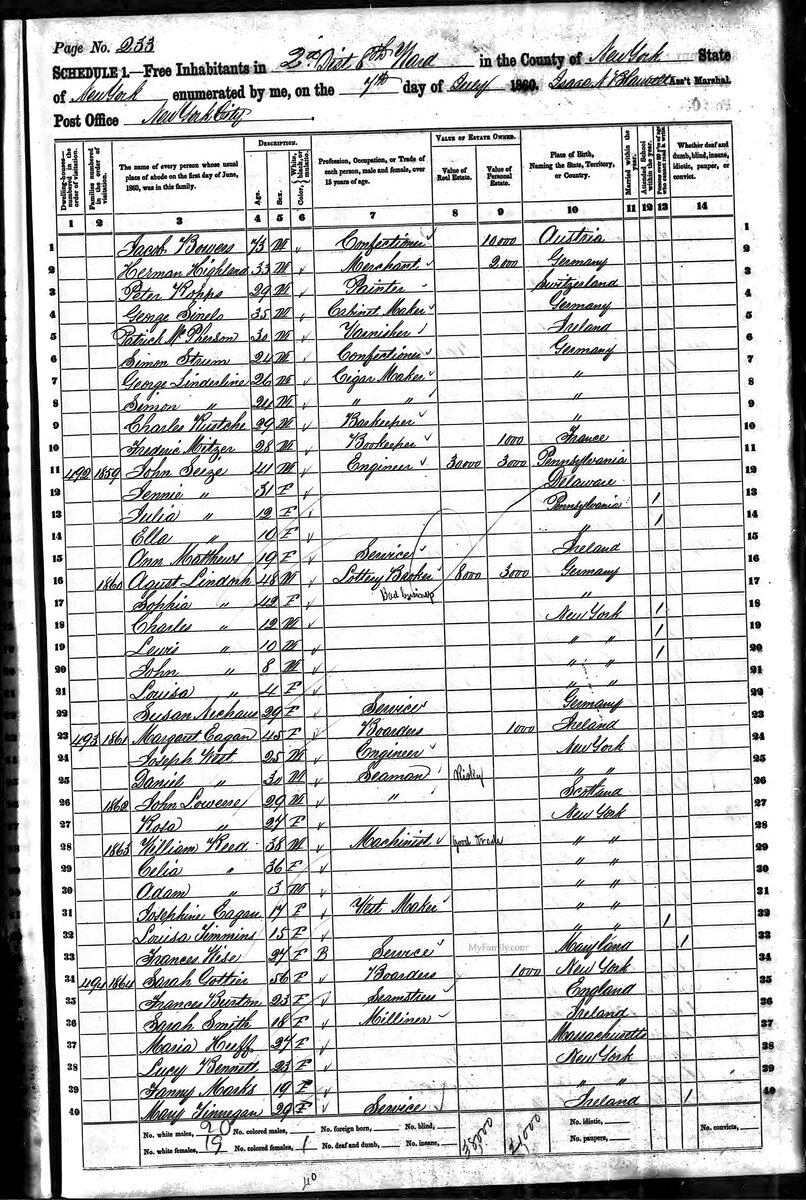 Page No. 233
SCHEDULE 1.—Free Inhabitants in 2nd Dist 8th Ward in the County of New York State
of New York enumerated by me, on the 7th day of July 1860. Ass't Marshal.
Post Office New York City
Dwelling-houses numbered in the order of visitation.
Families numbered in the order of visitation.
The name of every person whose usual place of abode on the first day of June, 1860, was in this family.
DESCRIPTION.
Age.
Sex.
Color, White, black, or mulatto.
Profession, Occupation, or Trade of each person, male and female, over 15 years of age.
VALUE OF ESTATE OWNED.
Value of Real Estate.
Value of Personal Estate.
Place of Birth, Naming the State, Territory, or Country.
Married within the year.
Attended School within the year.
Persons over 20 y'rs of age who cannot read & write.
Whether deaf and dumb, blind, insane, idiotic, pauper, or convict.
1 2 3 4 5 6 7 8 9 10 11 12 13 14
1 Jacob Bowers 73 M Confectioner 10,000 Austria 1
2 Herman Highland 33 M Merchant 2,000 Germany 2
3 Peter Kopps 29 M Painter Switzerland 3
4 George Sinels 35 M Cabinet Maker Germany 4
5 Patrick McPherson 30 M Varnisher Ireland 5
6 Simon Strum 24 M Confectioner Germany 6
7 George Linderline 26 M Cigar Maker " 7
8 Simon " 24 M " " " 8
9 Charles Kustche 29 M Barkeeper " 9
10 Frederic Mitzer 28 M Bookeeper 1000 France 10
11 492 1859 John Seize 41 M Engineer 30000 3000 Pennsylvania 11
12 Jennie " 31 F Delaware 12
13 Julia " 12 F Pennsylvania 1 13
14 Ella " 10 F " 1 14
15 Ann Matthews 19 F Service Ireland 15
16 1860 Agust Lindorh 48 M Lottery Broker 8000 3000 Germany 16
Bad business
17 Sophia " 42 F " 17
18 Charles " 12 M New York 1 18
19 Lewis " 10 M " " 1 19
20 John " 8 M " " 1 20
21 Louisa " 4 F " " 21
22 Susan Nechaus 29 F Service Germany 22
23 493 1861 Margaret Eagan 45 F Boarders 1000 Ireland 23
24 Joseph West 25 M Engineer New York 24
25 Daniel " 30 M Seaman Risky " " 25
26 1862 John Lowene 29 M " Scotland 26
27 Rosa " 27 F New York 27
28 1863 William Reed 38 M Machinist good trade " " 28
29 Celia " 36 F " " 29
30 Adam " 3 M " " 30
31 Josephine Eagan 17 F Vest Maker " " 31
32 Louisa Timmins 15 F " " 1 32
33 Frances Wise 27 F B Service Maryland 1 33
34 494 1864 Sarah Gottier 56 F Boarders 1000 New York 34
35 Frances Burton 23 F Seamstress England 35
36 Sarah Smith 18 F Milliner Ireland 36
37 Maria Huff 27 F Massachusetts 37
38 Lucy Bennett 23 F New York 38
39 Fanny Marks 19 F " " 39
40 Mary Finnegan 29 F Service Ireland 1 40
MyFamily.com
No. white males, 20 No. colored males, No. foreign born, No. blind, 38,000 21,000 No. idiotic, No. convicts,
No. white females, 19 No. colored females, 1 No. deaf and dumb, No. insane, No. paupers,
40